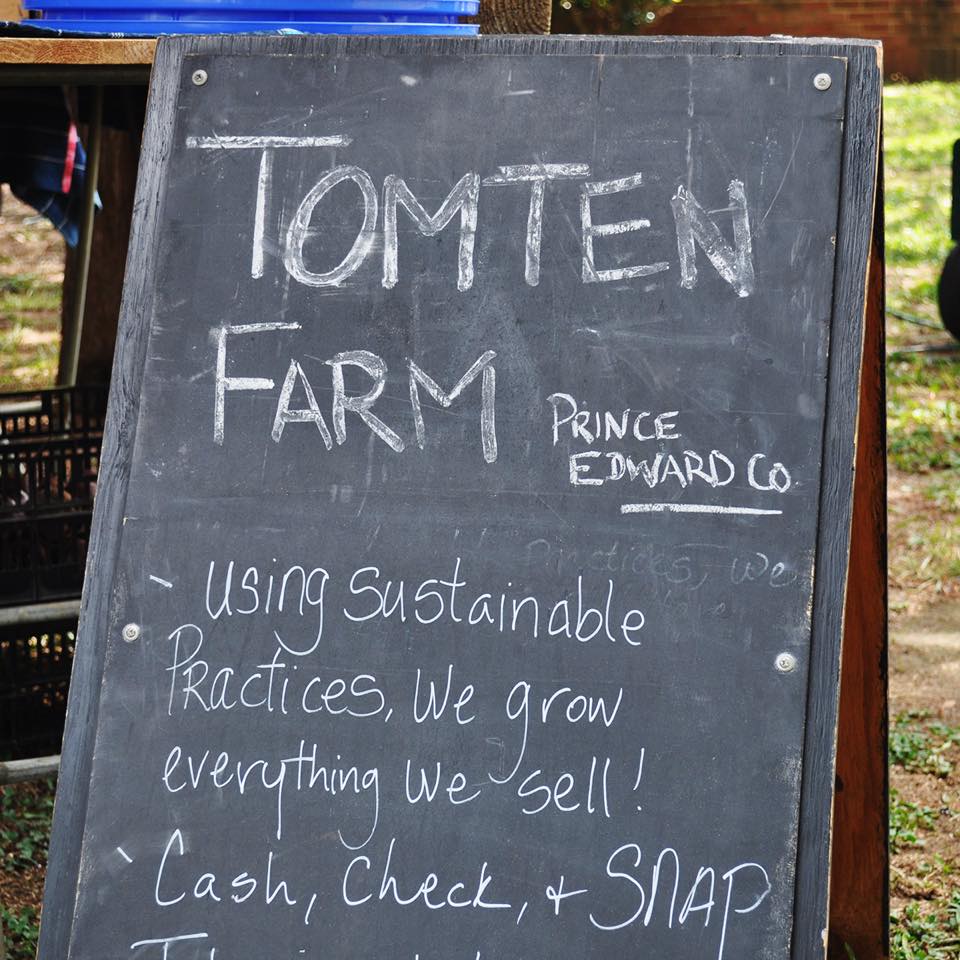 TOMTEN
FARM
PRINCE
EDWARD CO
- using sustainable
Practices, We grow
everything we sell!
- Cash, check, + SNAP